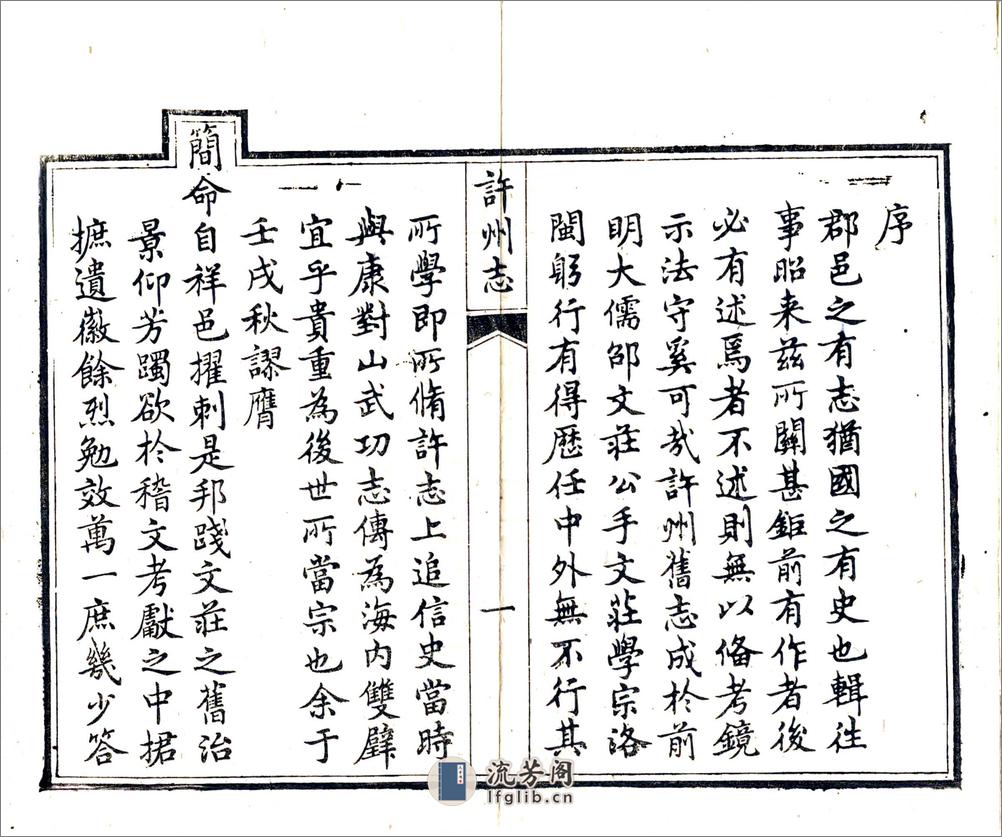 序
郡邑之有志猶國之有史也輯往
事昭来兹所關甚鉅前有作者後
必有述焉者不述則無以俻考鏡
示法守奚可哉許州舊志成於前
明大儒邵文莊公手文莊學宗洛
閩躬行有得歷任中外無不行其
許州志
一
所學即所脩許志上追信史當時
與康對山武功志傳為海内雙璧
宜乎貴重為後世所當宗也余于
壬戌秋謬膺
簡命自祥邑擢刺是邦踐文莊之舊治
景仰芳躅欲於稽文考獻之中捃
摭遺徽餘烈勉效萬一庶幾少答
流芳阁
lfglib.cn